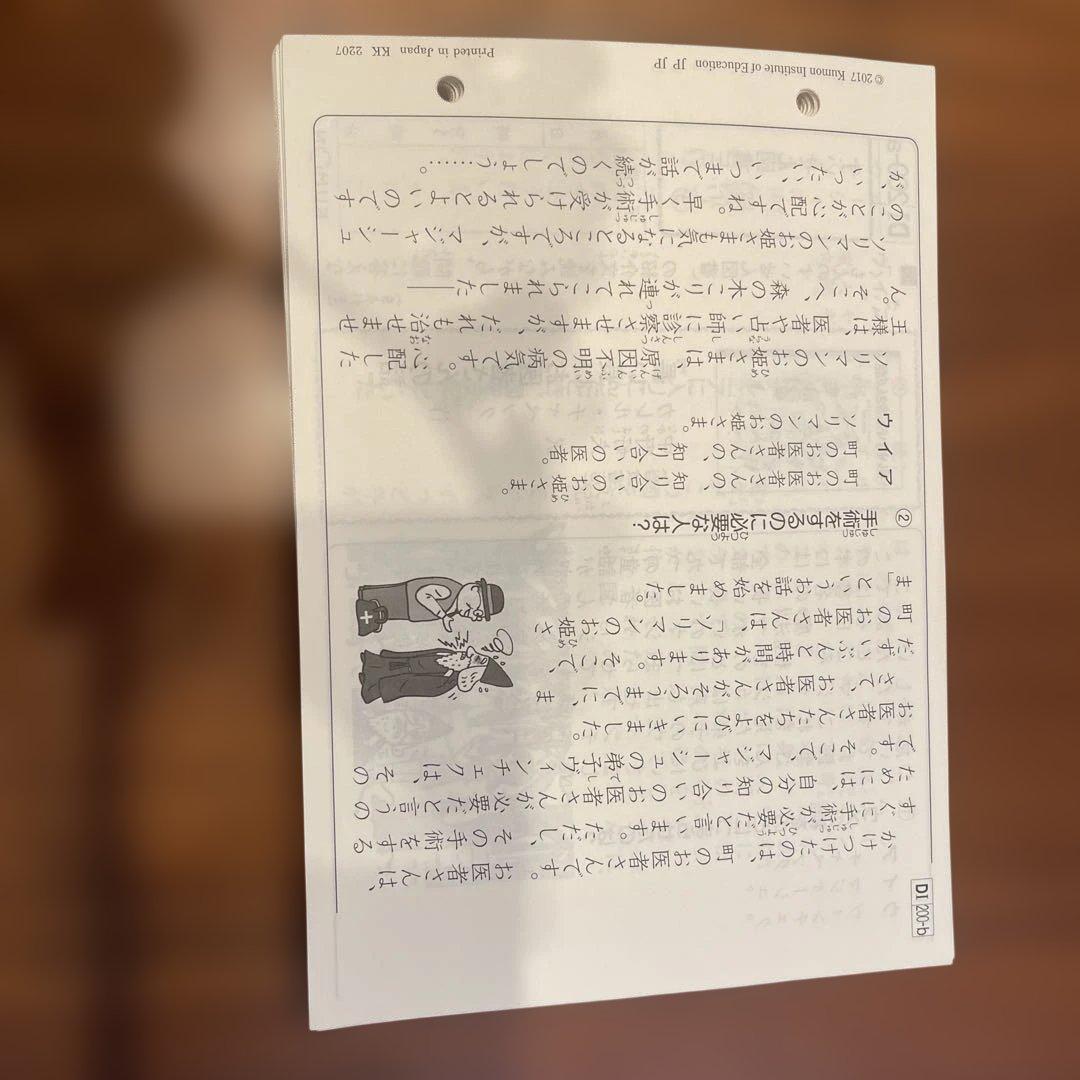 DI 200-b
かけつけたのは、町のお医者さんです。お医者さんは、
すぐに手術が必要だと言います。ただし、その手術をする
ためには、自分の知り合いのお医者さんが必要だと言うの
です。そこで、マジャーシュの弟子ヴィンチェクは、その
お医者さんたちをよびにいきました。
さて、お医者さんがそろうまでに、ま
だずいぶんと時間があります。そこで、
町のお医者さんは、「ソリマンのお姫さ
ま」というお話を始めました。
② 手術をするのに必要な人は？
ア 町のお医者さんの、知り合いのお姫さま。
イ 町のお医者さんの、知り合いの医者。
ウ ソリマンのお姫さま。
ソリマンのお姫さまは、原因不明の病気です。心配した
王様は、医者や占い師に診察させますが、だれも治せませ
ん。そこへ、森の木こりが連れてこられました――
ソリマンのお姫さまも気になるところですが、マジャーシュ
のことが心配ですね。早く手術が受けられるとよいのです
が、いったい、いつまで話が続くのでしょう……。
© 2017 Kumon Institute of Education JP JP
Printed in Japan KK 2207